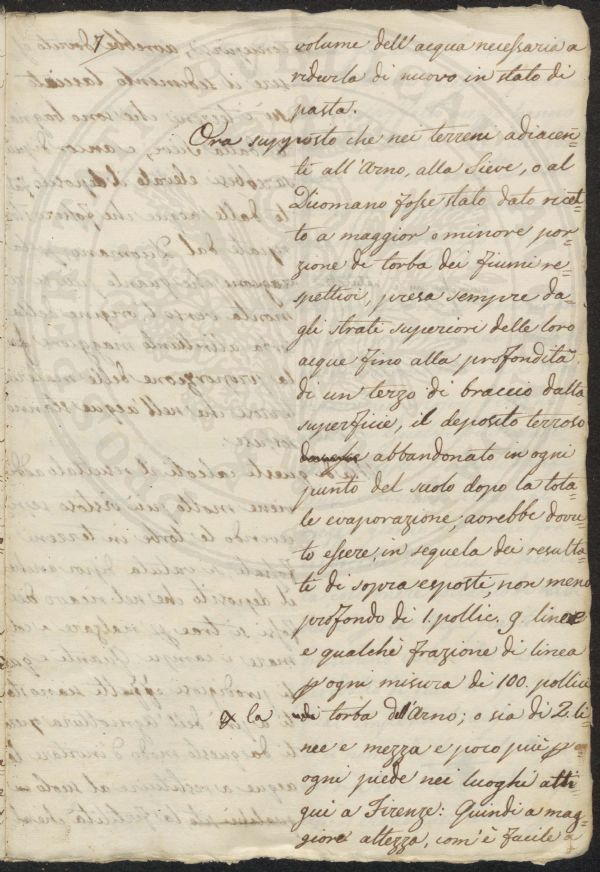 7
volume dell'acqua necessaria a
ridurla di nuovo in stato di
pasta.
Ora supposto che nei terreni adiacen=
ti all'Arno, alla Sieve, o al
Dicomano fosse stato dato ricet=
to a maggior o minore por=
zione di torba dei fiumi re=
spettivi, presa sempre da=
gli strati superiori delle loro
acque fino alla profondità
di un terzo di braccio dalla
superficie, il deposito terroso
abbandonato in ogni
punto del suolo dopo la tota=
le evaporazione, avrebbe dovu=
to essere, in sequela dei resulta=
ti di sopra esposti, non meno
profondo di 1. pollic. 9. linee
e qualchè frazione di linea
p ogni misura di 100. pollici
& la torba dell'Arno; o sia di 2. li=
nee e mezza e poco più p
ogni piede nei luoghi atti=
gui a Firenze: Quindi a mag=
giore altezza, com'è facile a